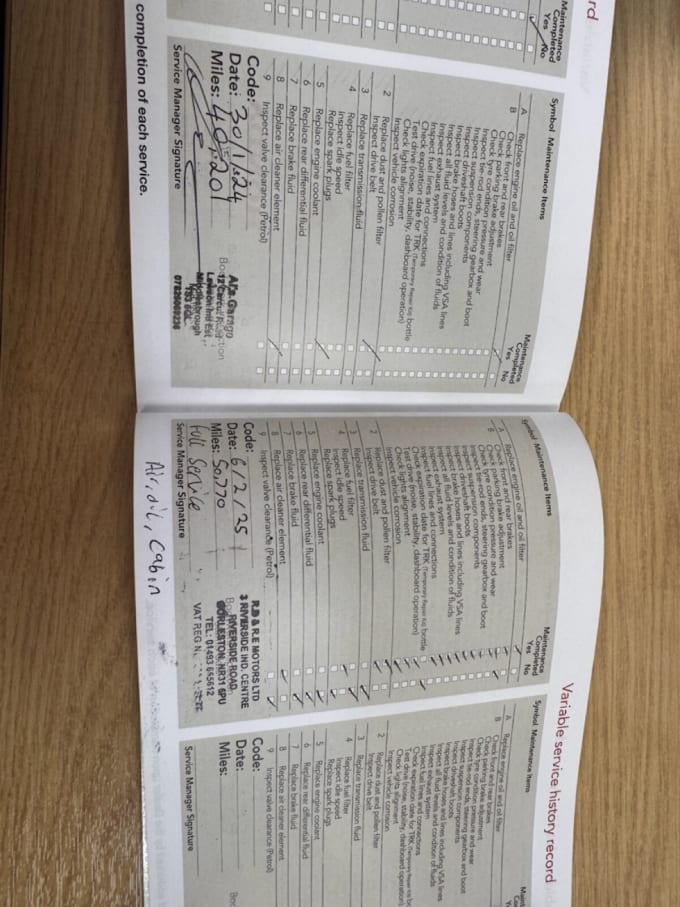 rd
Maintenance
Completed
Yes No
completion of each service.
Symbol Maintenance Items
Maintenance
Completed
Yes No
A Replace engine oil and oil filter
B Check front and rear brakes
Check parking brake adjustment
Check tyre condition pressure and wear
Inspect tie-rod ends, steering gearbox and boot
Inspect suspension components
Inspect driveshaft boots
Inspect brake hoses and lines including VSA lines
Inspect all fluid levels and condition of fluids
Inspect exhaust system
Inspect fuel lines and connections
Check expiration date for TRK (Temporary Repair Kit) bottle
Test drive (noise, stability, dashboard operation)
Check lights alignment
Inspect vehicle corrosion
2 Replace dust and pollen filter
Inspect drive belt
3 Replace transmission fluid
4 Replace fuel filter
Inspect idle speed
Replace spark plugs
5 Replace engine coolant
6 Replace rear differential fluid
7 Replace brake fluid
8 Replace air cleaner element
9 Inspect valve clearance (Petrol)
Code:
Date: 30/1/24
Miles:
Service Manager Signature
Al's Garage
Middlesbrough
Variable service history record
Symbol Maintenance Items
Maintenance
Completed
Yes No
A Replace engine oil and oil filter
B Check front and rear brakes
Check parking brake adjustment
Check tyre condition pressure and wear
Inspect tie-rod ends, steering gearbox and boot
Inspect suspension components
Inspect driveshaft boots
Inspect brake hoses and lines including VSA lines
Inspect all fluid levels and condition of fluids
Inspect exhaust system
Inspect fuel lines and connections
Check expiration date for TRK (Temporary Repair Kit) bottle
Test drive (noise, stability, dashboard operation)
Check lights alignment
Inspect vehicle corrosion
2 Replace dust and pollen filter
Inspect drive belt
3 Replace transmission fluid
4 Replace fuel filter
Inspect idle speed
Replace spark plugs
5 Replace engine coolant
6 Replace rear differential fluid
7 Replace brake fluid
8 Replace air cleaner element
9 Inspect valve clearance (Petrol)
Code:
Date: 6/2/25
Miles: 50,770
Full Service
Service Manager Signature
R.D & R.E MOTORS LTD
3 RIVERSIDE IND. CENTRE
RIVERSIDE ROAD,
GORLESTON, NR31 6PU
TEL: 01493 655612
VAT REG N.
Air, oil, Cabin
Symbol Maintenance Items
A Replace engine oil and oil filter
B Check front and rear brakes
Check parking brake adjustment
Check tyre condition pressure and wear
Inspect tie-rod ends, steering gearbox and boot
Inspect suspension components
Inspect driveshaft boots
Inspect brake hoses and lines including VSA lines
Inspect all fluid levels and condition of fluids
Inspect exhaust system
Inspect fuel lines and connections
Check expiration date for TRK (Temporary Repair Kit) bo
Test drive (noise, stability, dashboard operation)
Check lights alignment
Inspect vehicle corrosion
2 Replace dust and pollen filter
Inspect drive belt
3 Replace transmission fluid
4 Replace fuel filter
Inspect idle speed
Replace spark plugs
5 Replace engine coolant
6 Replace rear differential fluid
7 Replace brake fluid
8 Replace air cleaner element
9 Inspect valve clearance (Petrol)
Code:
Date:
Miles:
Service Manager Signature